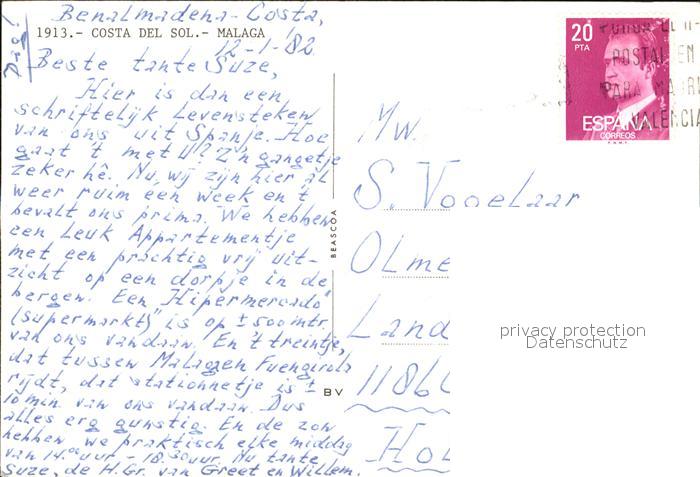 Benalmadena-Costa,
1913.- COSTA DEL SOL.- MALAGA
12-1-'82
Dag!
Beste tante Suze,
Hier is dan een
schriftelijk Levensteken
van ons uit Spanje. Hoe
gaat 't met U? Z'n gangetje
zeker hè. Nu, wij zijn hier al
weer ruim één week en 't
bevalt ons prima. We hebben
een Leuk Appartementje
met een prachtig vrij uit-
zicht op een dorpje in de
bergen. Een "Hipermercado"
(supermarkt)" is op ± 500 mtr.
van ons vandaan. En 't treintje,
dat tussen Malaga en Fuengirola
rijdt, dat stationnetje is ±
10 min. van ons vandaan. Dus
alles erg gunstig. En de zon
hebben we praktisch elke middag
van 14.00 uur - 18.30 uur. Nu tante
Suze, de H. Gr. van Greet en Willem.
BEASCOA
BV
20
PTA
ESPAÑA
CORREOS
F.N.M.T.
POSTAL EN
PARA MADRI
VALENCIA
Mw.
S. Vogelaar
Olme
Land
1186
Hol
privacy protection
Datenschutz